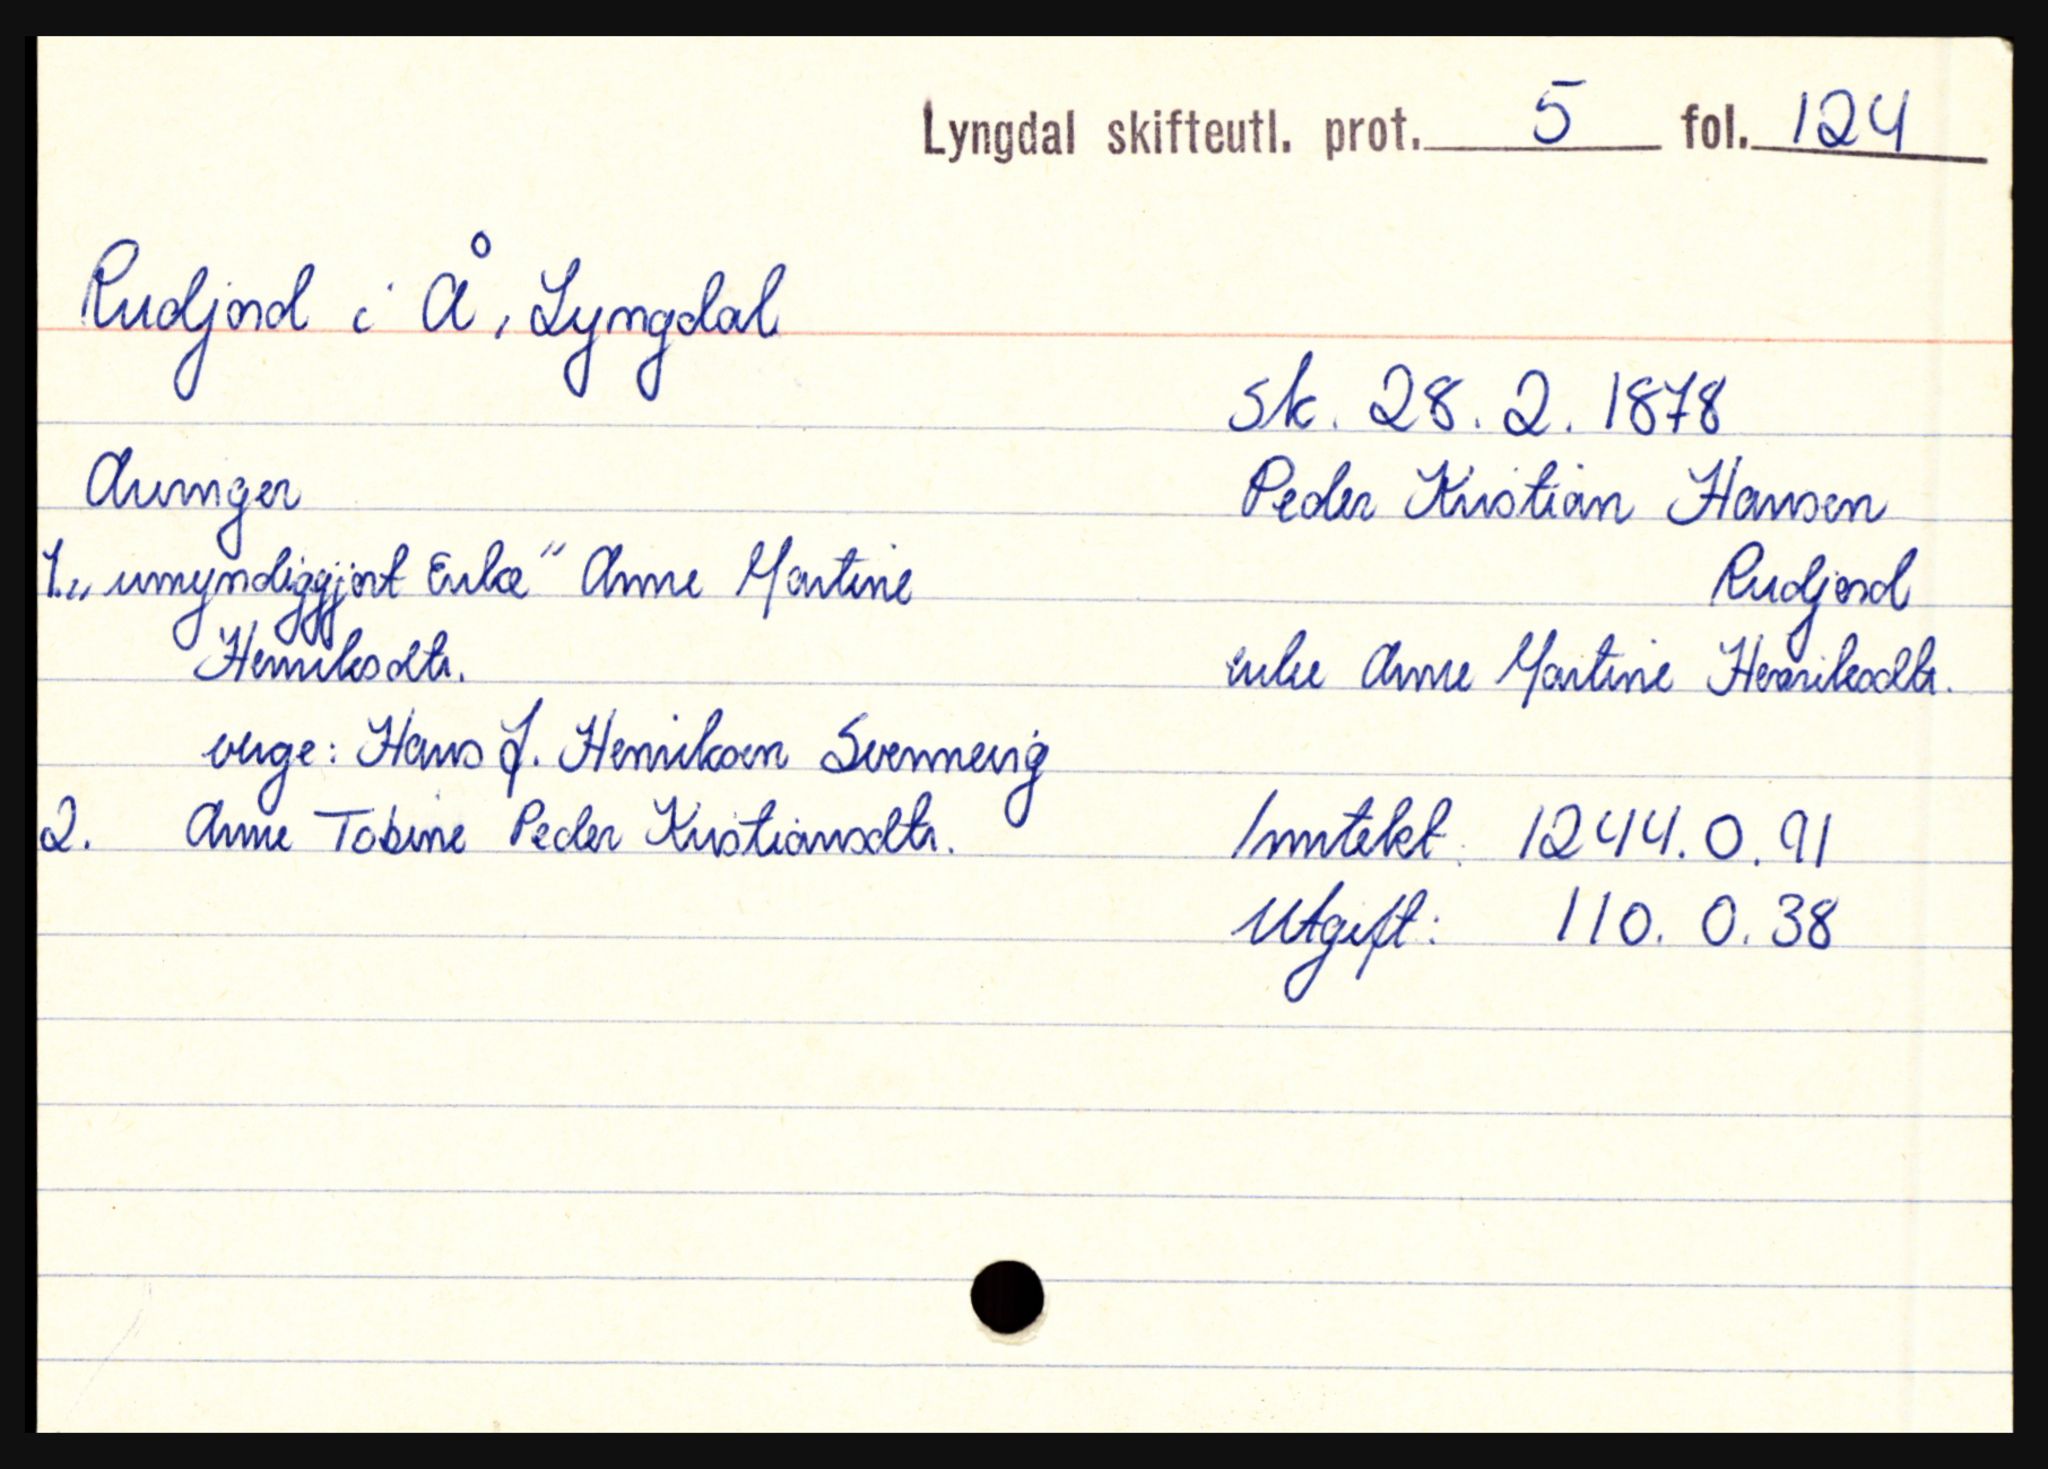 Lyngdal skifteutl. prot. 5 fol. 124
Rudjord i Å, Lyngdal
sk. 28.2.1878
Arvinger
Peder Kristian Hansen
Rudjord
1. „umyndiggjort Enke" Anne Martine
Henriksdtr.
enke Anne Martine Henriksdtr.
verge: Hans J. Henriksen Svennevig
2. Anne Tobine Peder Kristiansdtr.
Inntekt: 1244.0.91
Utgift: 110.0.38